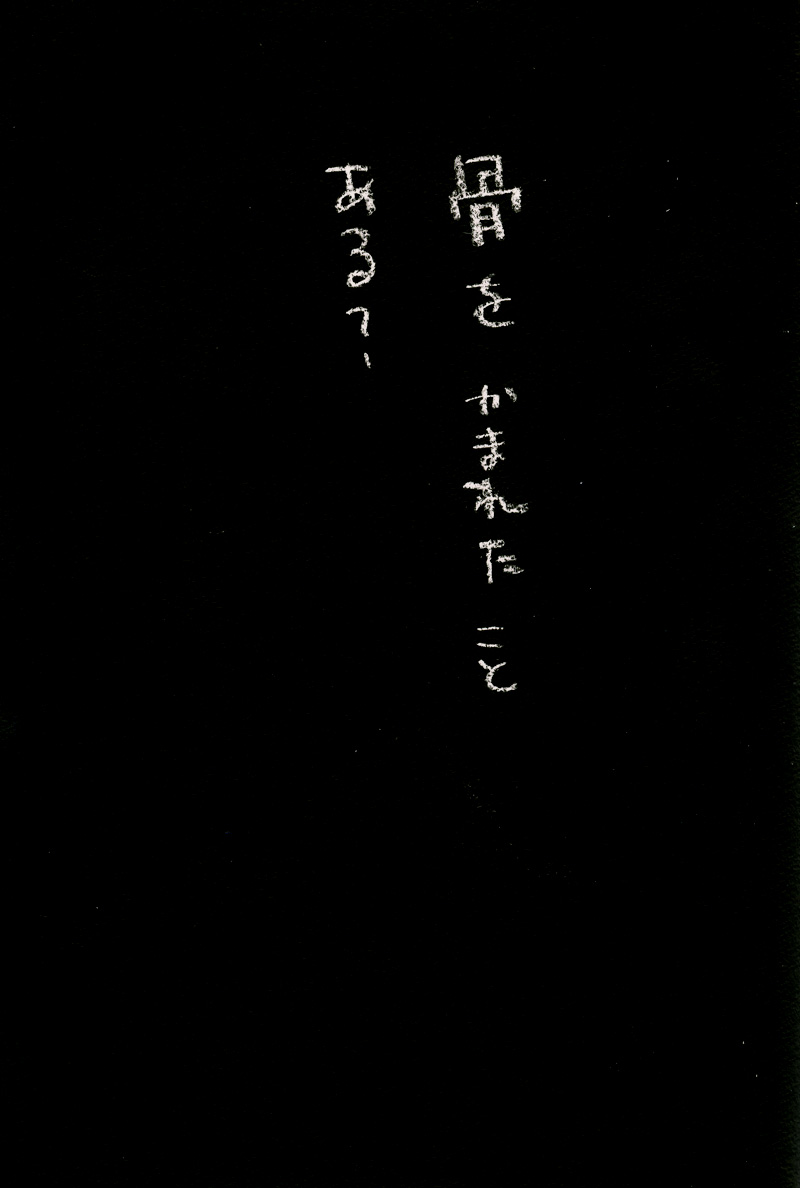 骨を かまれた こと
ある?